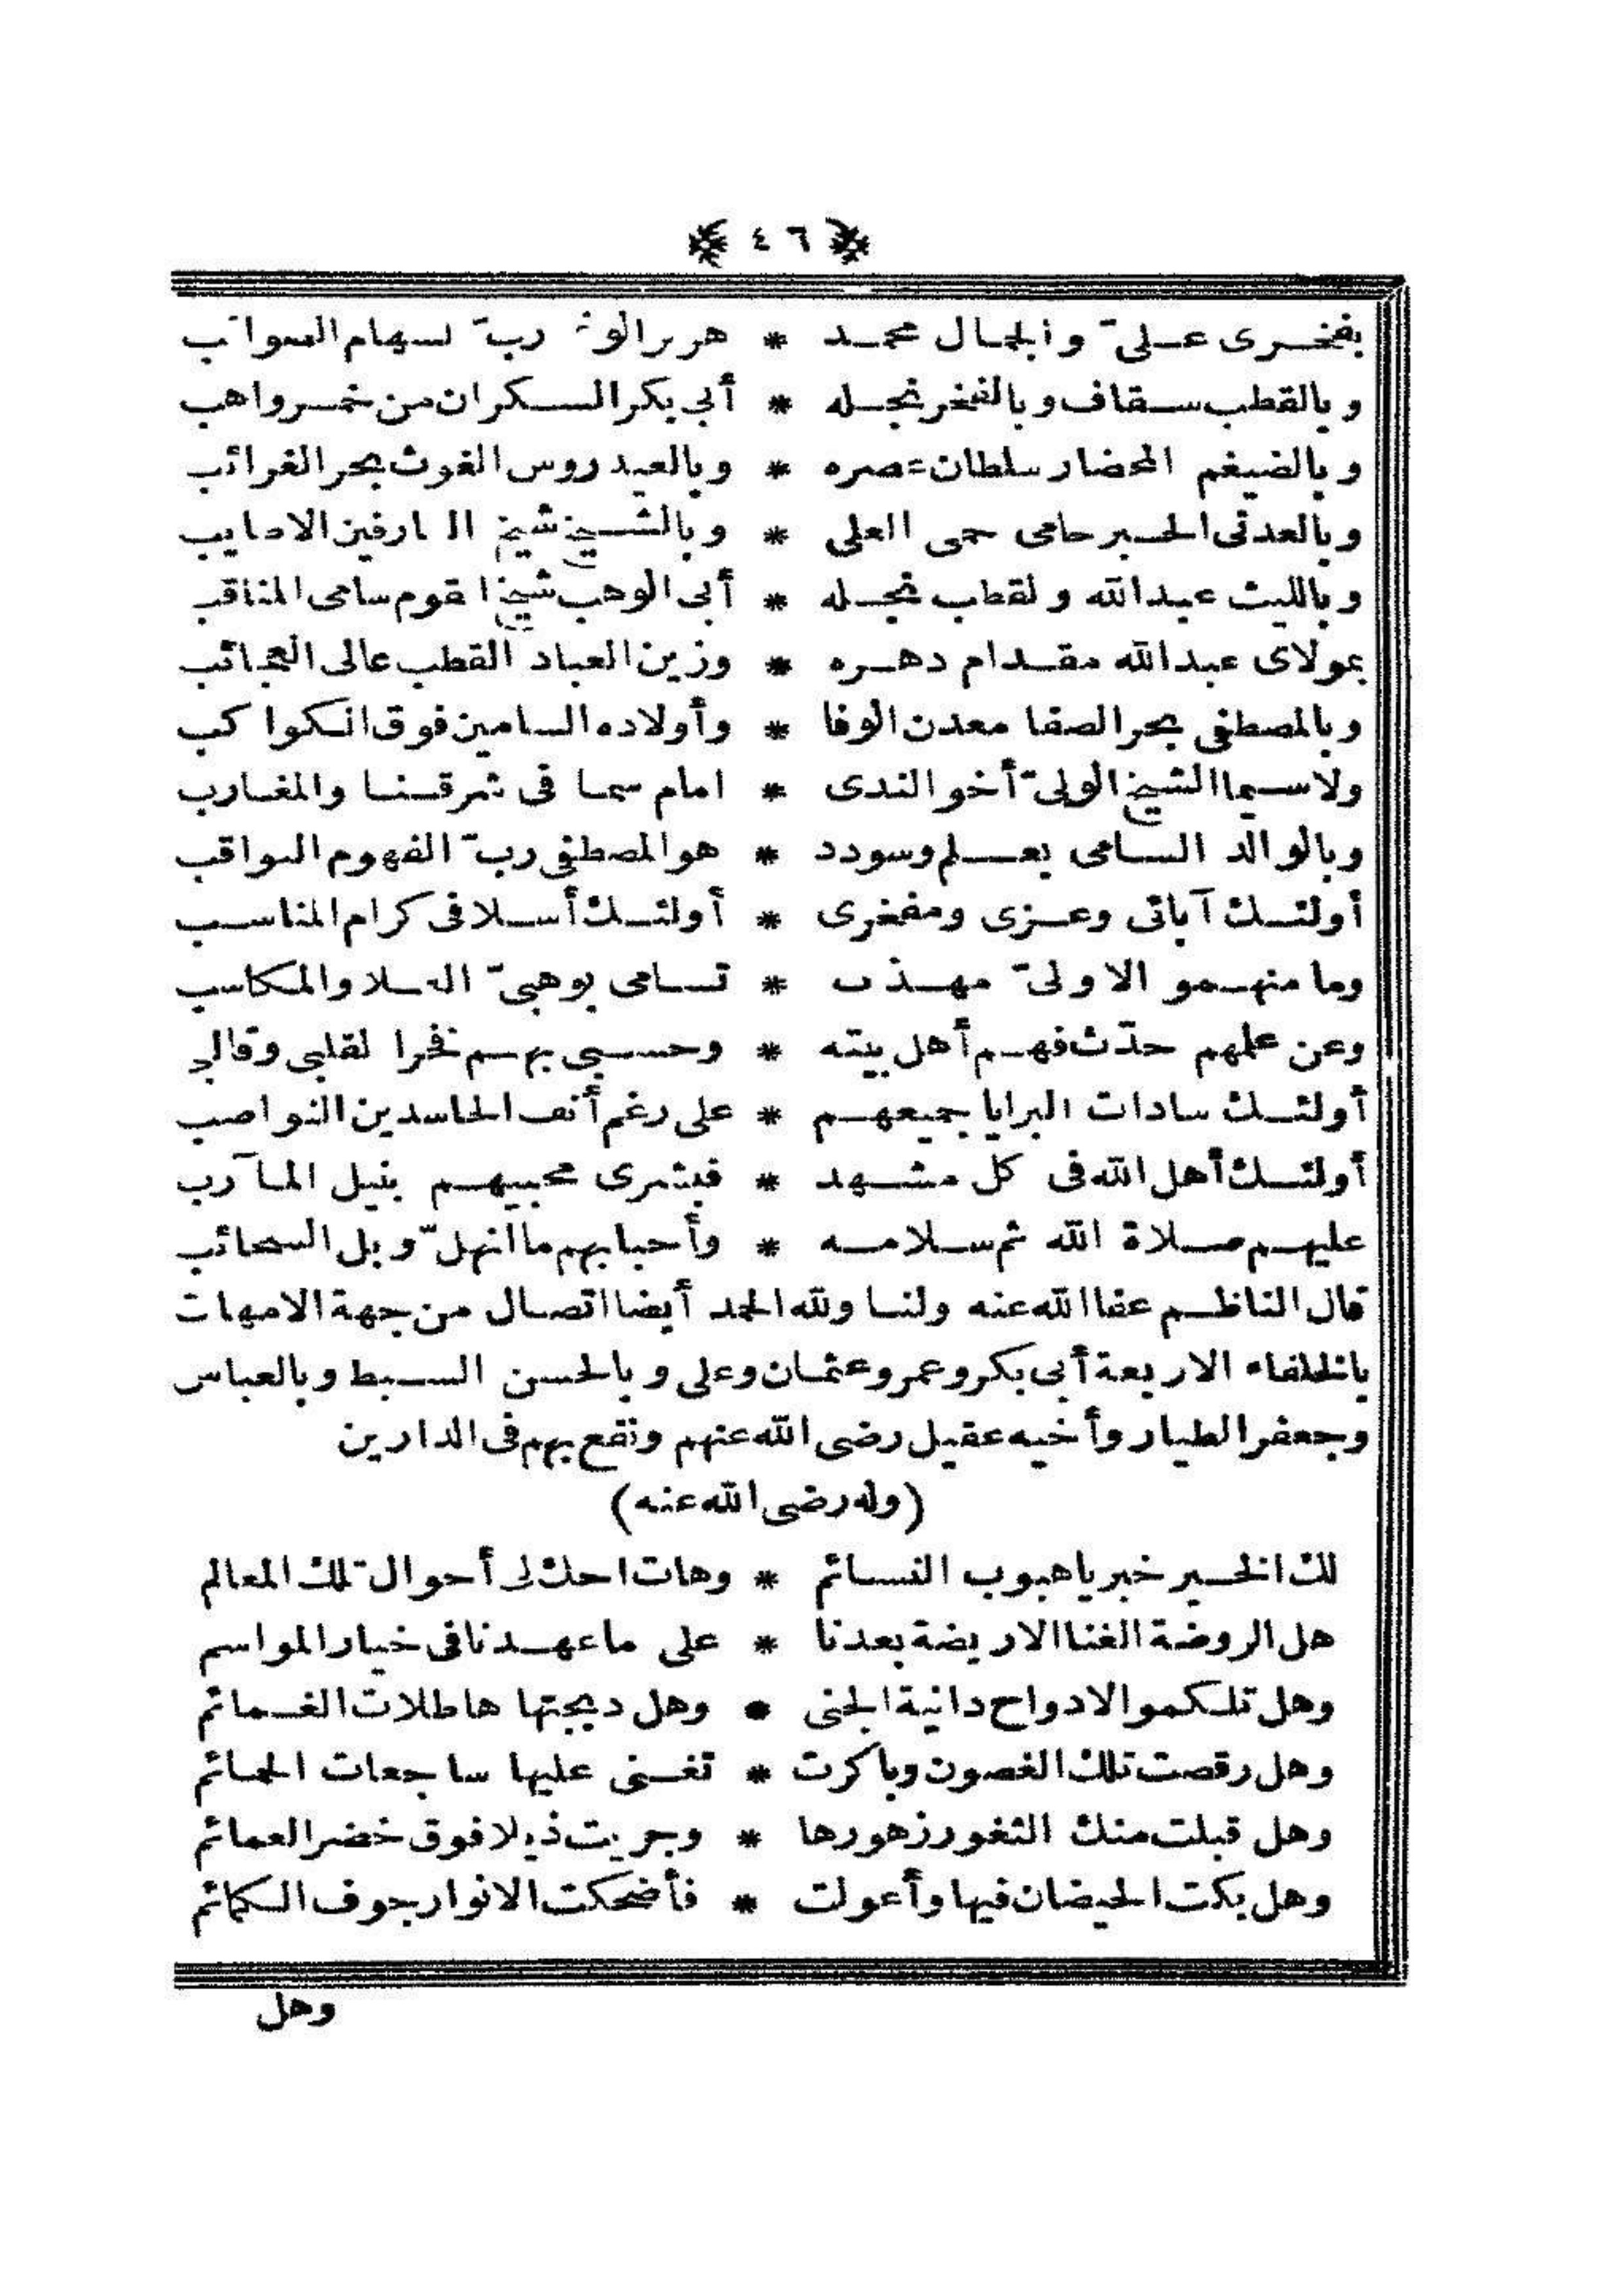 ٤٦
بفخرى على وا الجمال محمد * هزبر الو رب السهام الصوائب
وبالقطب سقاف وبالفخر نجله * أبى بكر السكران من خمر واهب
وبالضيغم المحضار سلطان عصره * وبالعيدروس الغوث بحر الغرائب
وبالعدنى الحبر حامى حمى العلى * وبالشيخ شيخ العارفين الاطايب
وبالليث عبدالله والقطب نجله * أبى الوهب شيخ القوم سامى المناقب
بمولاى عبدالله مقدام دهره * وزين العباد القطب عالى العجائب
وبالمصطفى بحر الصفا معدن الوفا * وأولاده السامين فوق الكواكب
ولاسيما الشيخ الولىّ أخو الندى * امام سما فى شرقنا والمغارب
وبالوالد السامى بعلم وسودد * هو المصطفى ربّ الفهوم الثواقب
أولئك آبائى وعزى ومفخرى * أولئك أسلافى كرام المناسب
وما منهمو الا ولىّ مهذب * تسامى بوهبىّ العلا والمكاسب
وعن علمهم حدّث فهم أهل بيته * وحسبى بهم فخرا لقلبى وقالبى
أولئك سادات البرايا جميعهم * على رغم أنف الحاسدين النواصب
أولئك أهل الله فى كل مشهد * فبشرى محبيهم بنيل المآرب
عليهم صلاة الله ثم سلامه * وأحبابهم ما انهلّ وبل السحائب
قال الناظم عفا الله عنه ولنا ولله الحمد أيضا اتصال من جهة الامهات
بالخلفاء الاربعة أبى بكر وعمر وعثمان وعلى وبالحسن السبط وبالعباس
وجعفر الطيار وأخيه عقيل رضى الله عنهم ونفع بهم فى الدارين
(وله رضى الله عنه)
لك الخير خبر يا هبوب النسائم * وهات احك لى أحوال تلك المعالم
هل الروضة الغنا الاريضة بعدنا * على ما عهدنا فى خيار المواسم
وهل تلكمو الادواح دانية الجنى * وهل ديجتها هاطلات الغمائم
وهل رقصت تلك الغصون وباكرت * تغنى عليها ساجعات الحمائم
وهل قبلت منك الثغور زهورها * وجريت ذيلا فوق خضر العمائم
وهل بكت الحيضان فيها وأعولت * فأضحكت الانوار جوف الكمائم
وهل